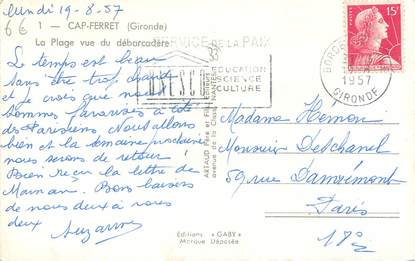 lundi 19-8-57
6€
1 — CAP-FERRET (Gironde)
La Plage vue du débarcadère
Le temps est beau
sans être trop chaud
et je crois que nous
sommes favorisés à côté
des Parisiens. Nous allons
bien et la semaine prochaine
nous serons de retour.
Bien reçu la lettre de
Maman. Bons baisers
de nous deux à vous
deux
Suzanne
SERVICE DE LA PAIX
UNESCO
EDUCATION
SCIENCE
CULTURE
ARTAUD Père et Fils, Editeurs
avenue de la Close NANTES
15F
1957
GIRONDE
Madame Hémon
Monsieur Deschanel
59 rue Damrémont
Paris
18e
Editions "GABY"
Marque Déposée